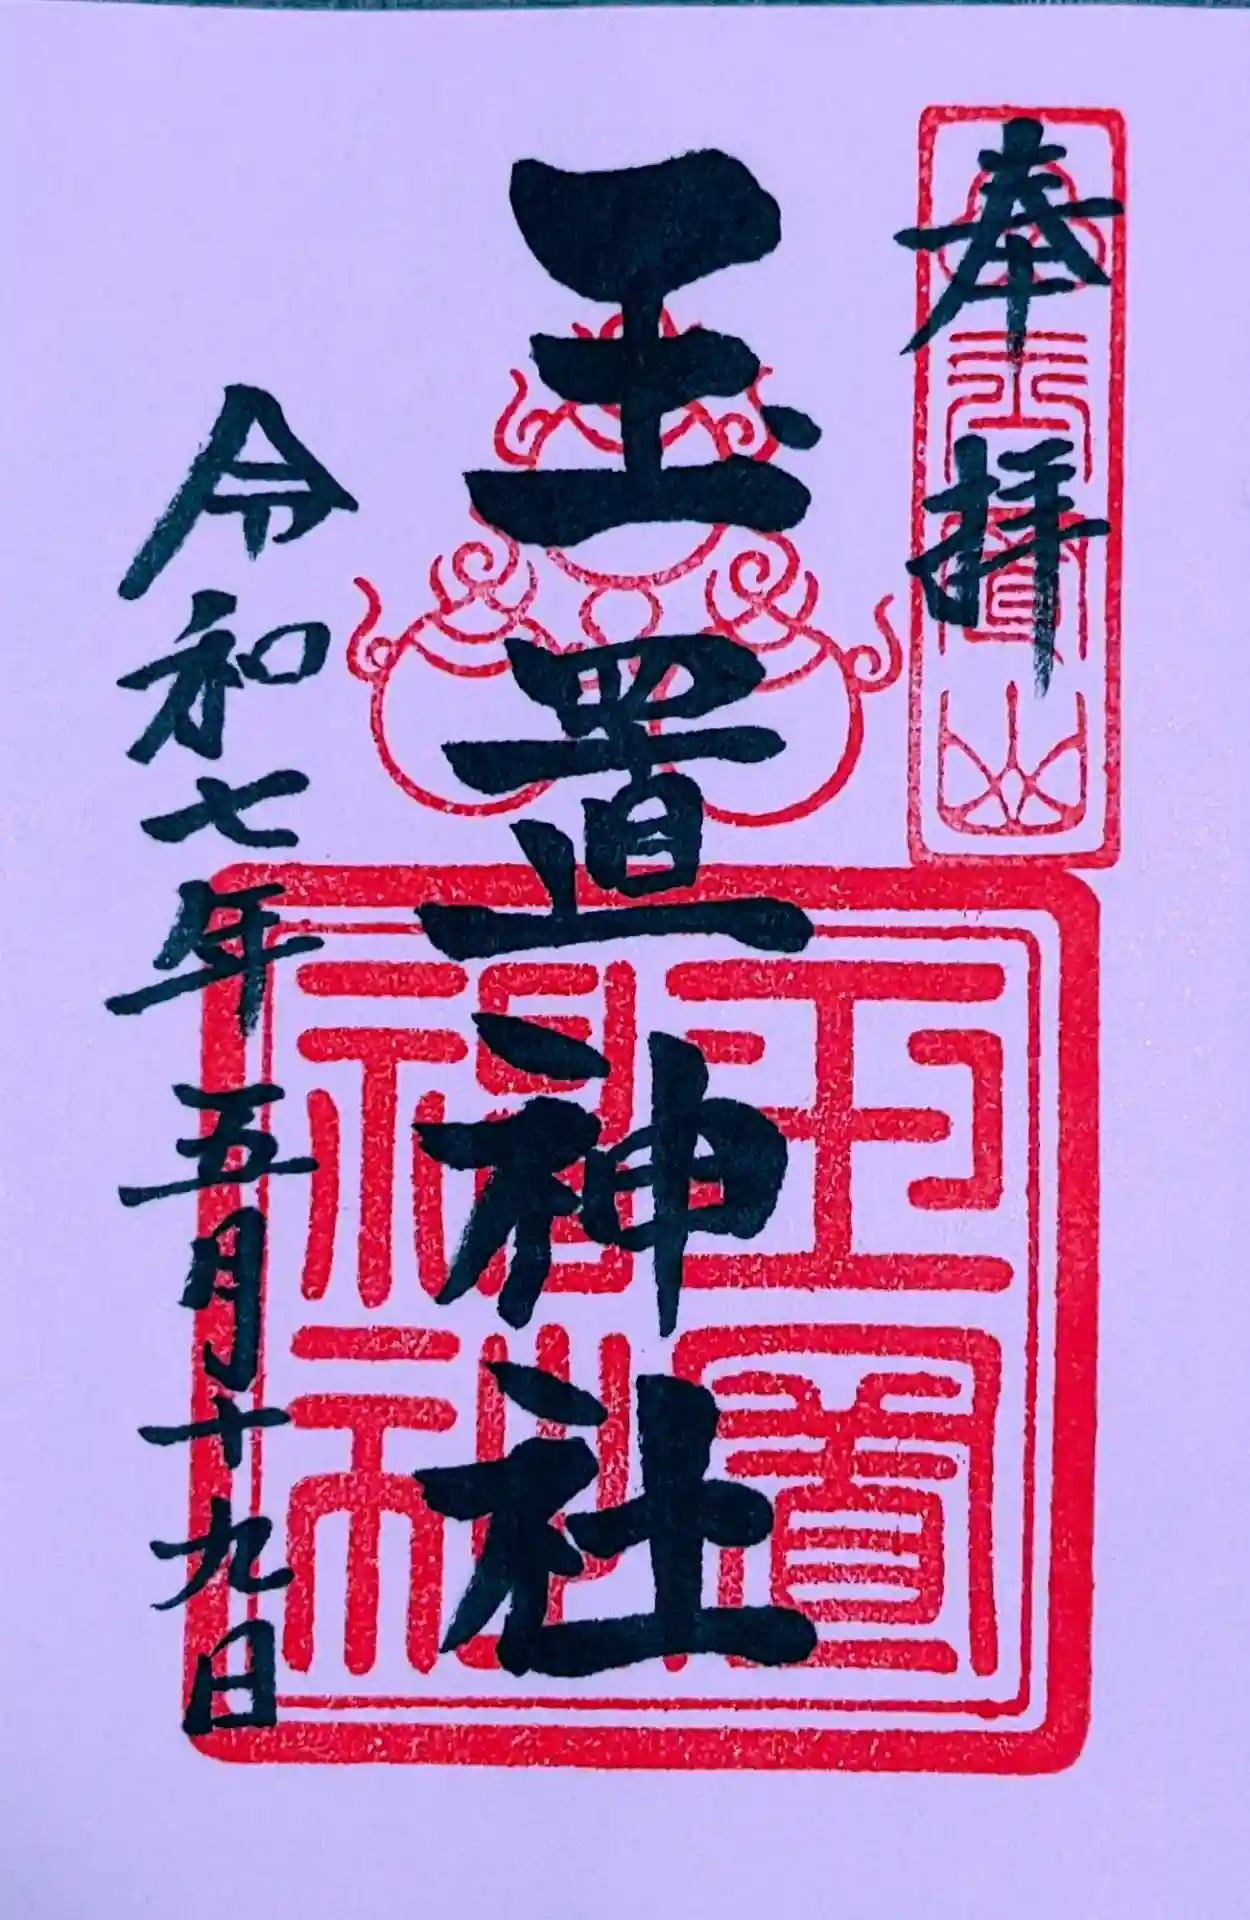 奉拝
玉置山
玉置神社
玉置
神社
令和七年五月十九日